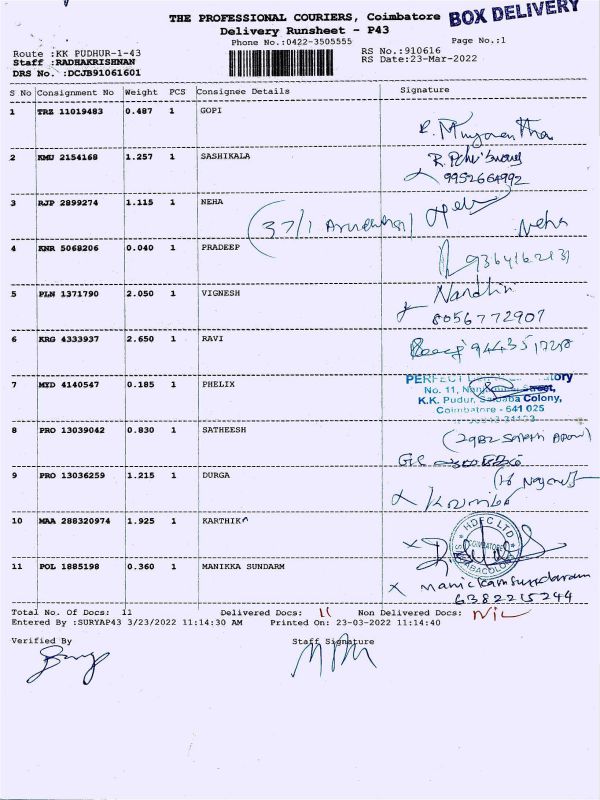 THE PROFESSIONAL COURIERS, Coimbatore
BOX DELIVERY
Delivery Runsheet - P43
Phone No.:0422-3505555
Page No.:1
Route :KK PUDHUR-1-43
RS No.:910616
Staff :RADHAKRISHNAN
RS Date:23-Mar-2022
DRS No. :DCJB91061601
S No Consignment No Weight PCS Consignee Details Signature
1 TRZ 11019483 0.487 1 GOPI
2 KMU 2154168 1.257 1 SASHIKALA
9952664992
3 RJP 2899274 1.115 1 NEHA
Neha
4 KNR 5068206 0.040 1 PRADEEP
5 PLN 1371790 2.050 1 VIGNESH
8056772907
6 KRG 4333937 2.650 1 RAVI
7 MYD 4140547 0.185 1 PHELIX
PERFECT
No. 11, Street,
K.K. Pudur, Saibaba Colony,
Coimbatore - 641 025
8 PRO 13039042 0.830 1 SATHEESH
9 PRO 13036259 1.215 1 DURGA
10 MAA 288320974 1.925 1 KARTHIK
HDFC LTD
COIMBATORE
11 POL 1885198 0.360 1 MANIKKA SUNDARM
Manickamsundaram
6382215244
Total No. Of Docs: 11 Delivered Docs: 11 Non Delivered Docs: NIL
Entered By :SURYAP43 3/23/2022 11:14:30 AM Printed On: 23-03-2022 11:14:40
Verified By Staff Signature